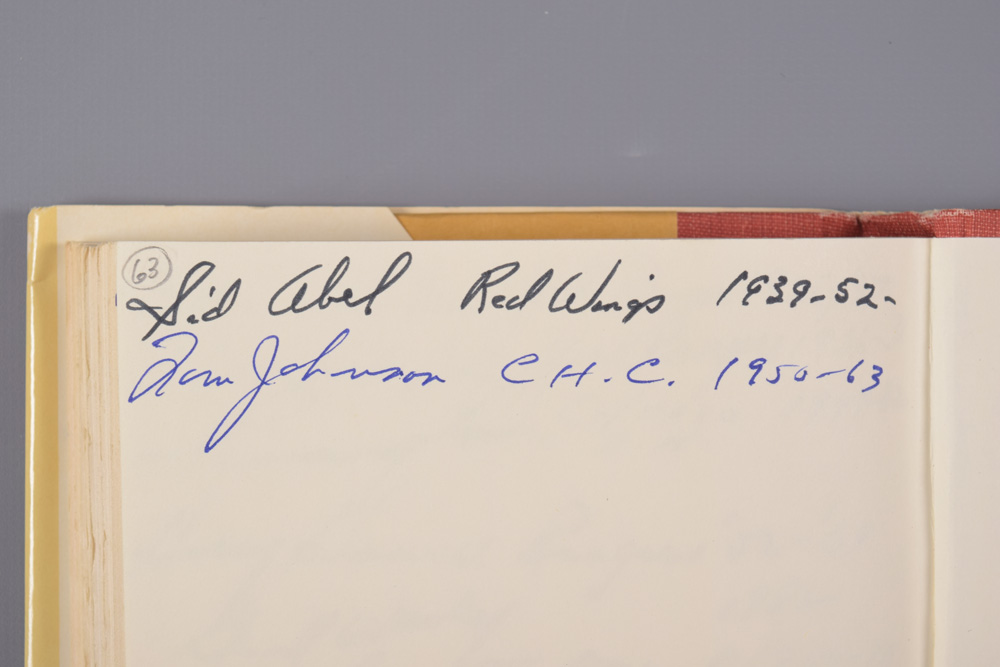 63
Sid Abel Red Wings 1939-52-
Tom Johnson C H. C. 1950-63